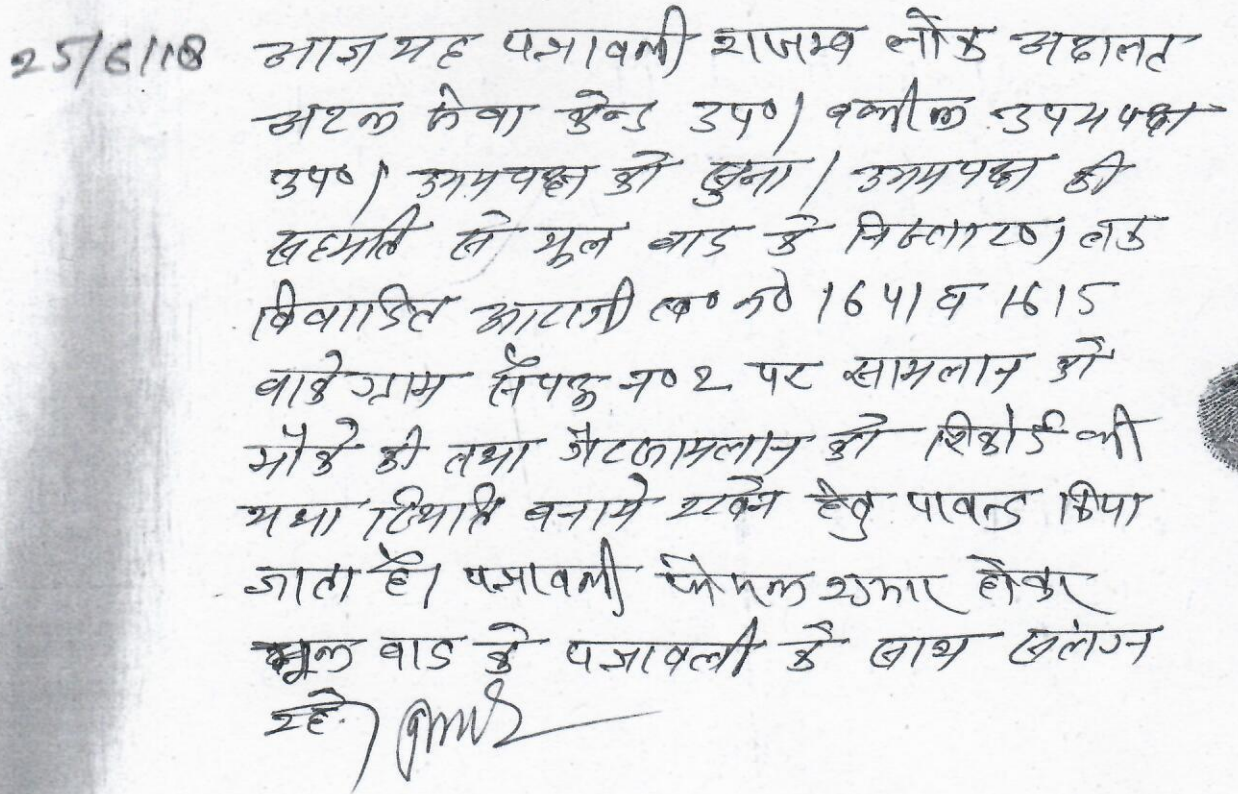 25/6/18 आज यह पत्रावली राजस्व लोक अदालत
अटल सेवा केन्द्र उप०। वकील उभयपक्ष
उप०। उभयपक्ष को सुना। उभयपक्ष की
सहमति से मूल वाद के निस्तारण तक
विवादित आराजी ख० नं० 1641 व 1615
वाके ग्राम सैंपऊ न० 2 पर सायलान को
मौके की तथा गैरसायलान को रिकोर्ड की
यथा स्थिति बनाये रखने हेतु पाबन्द किया
जाता है। पत्रावली फैसल शुमार होकर
मूल वाद के पत्रावली के साथ संलग्न
रहे।